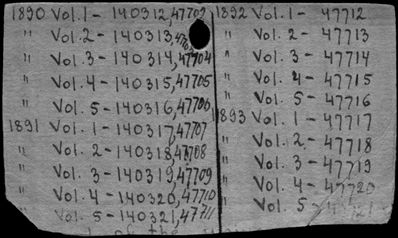 1890 Vol.1 - 140312,47702
" Vol.2 - 140313,
" Vol.3 - 140314,47704
" Vol.4 - 140315,47705
" Vol.5 - 140316,47706
1891 Vol.1 - 140317,47707
" Vol.2 - 140318,47708
" Vol.3 - 140319,47709
" Vol.4 - 140320,47710
" Vol.5 - 140321,47711
of the
1892 Vol.1 - 47712
" Vol.2 - 47713
" Vol.3 - 47714
" Vol.4 - 47715
" Vol.5 - 47716
1893 Vol.1 - 47717
" Vol.2 - 47718
" Vol.3 - 47719
" Vol.4 - 47720
" Vol.5 -